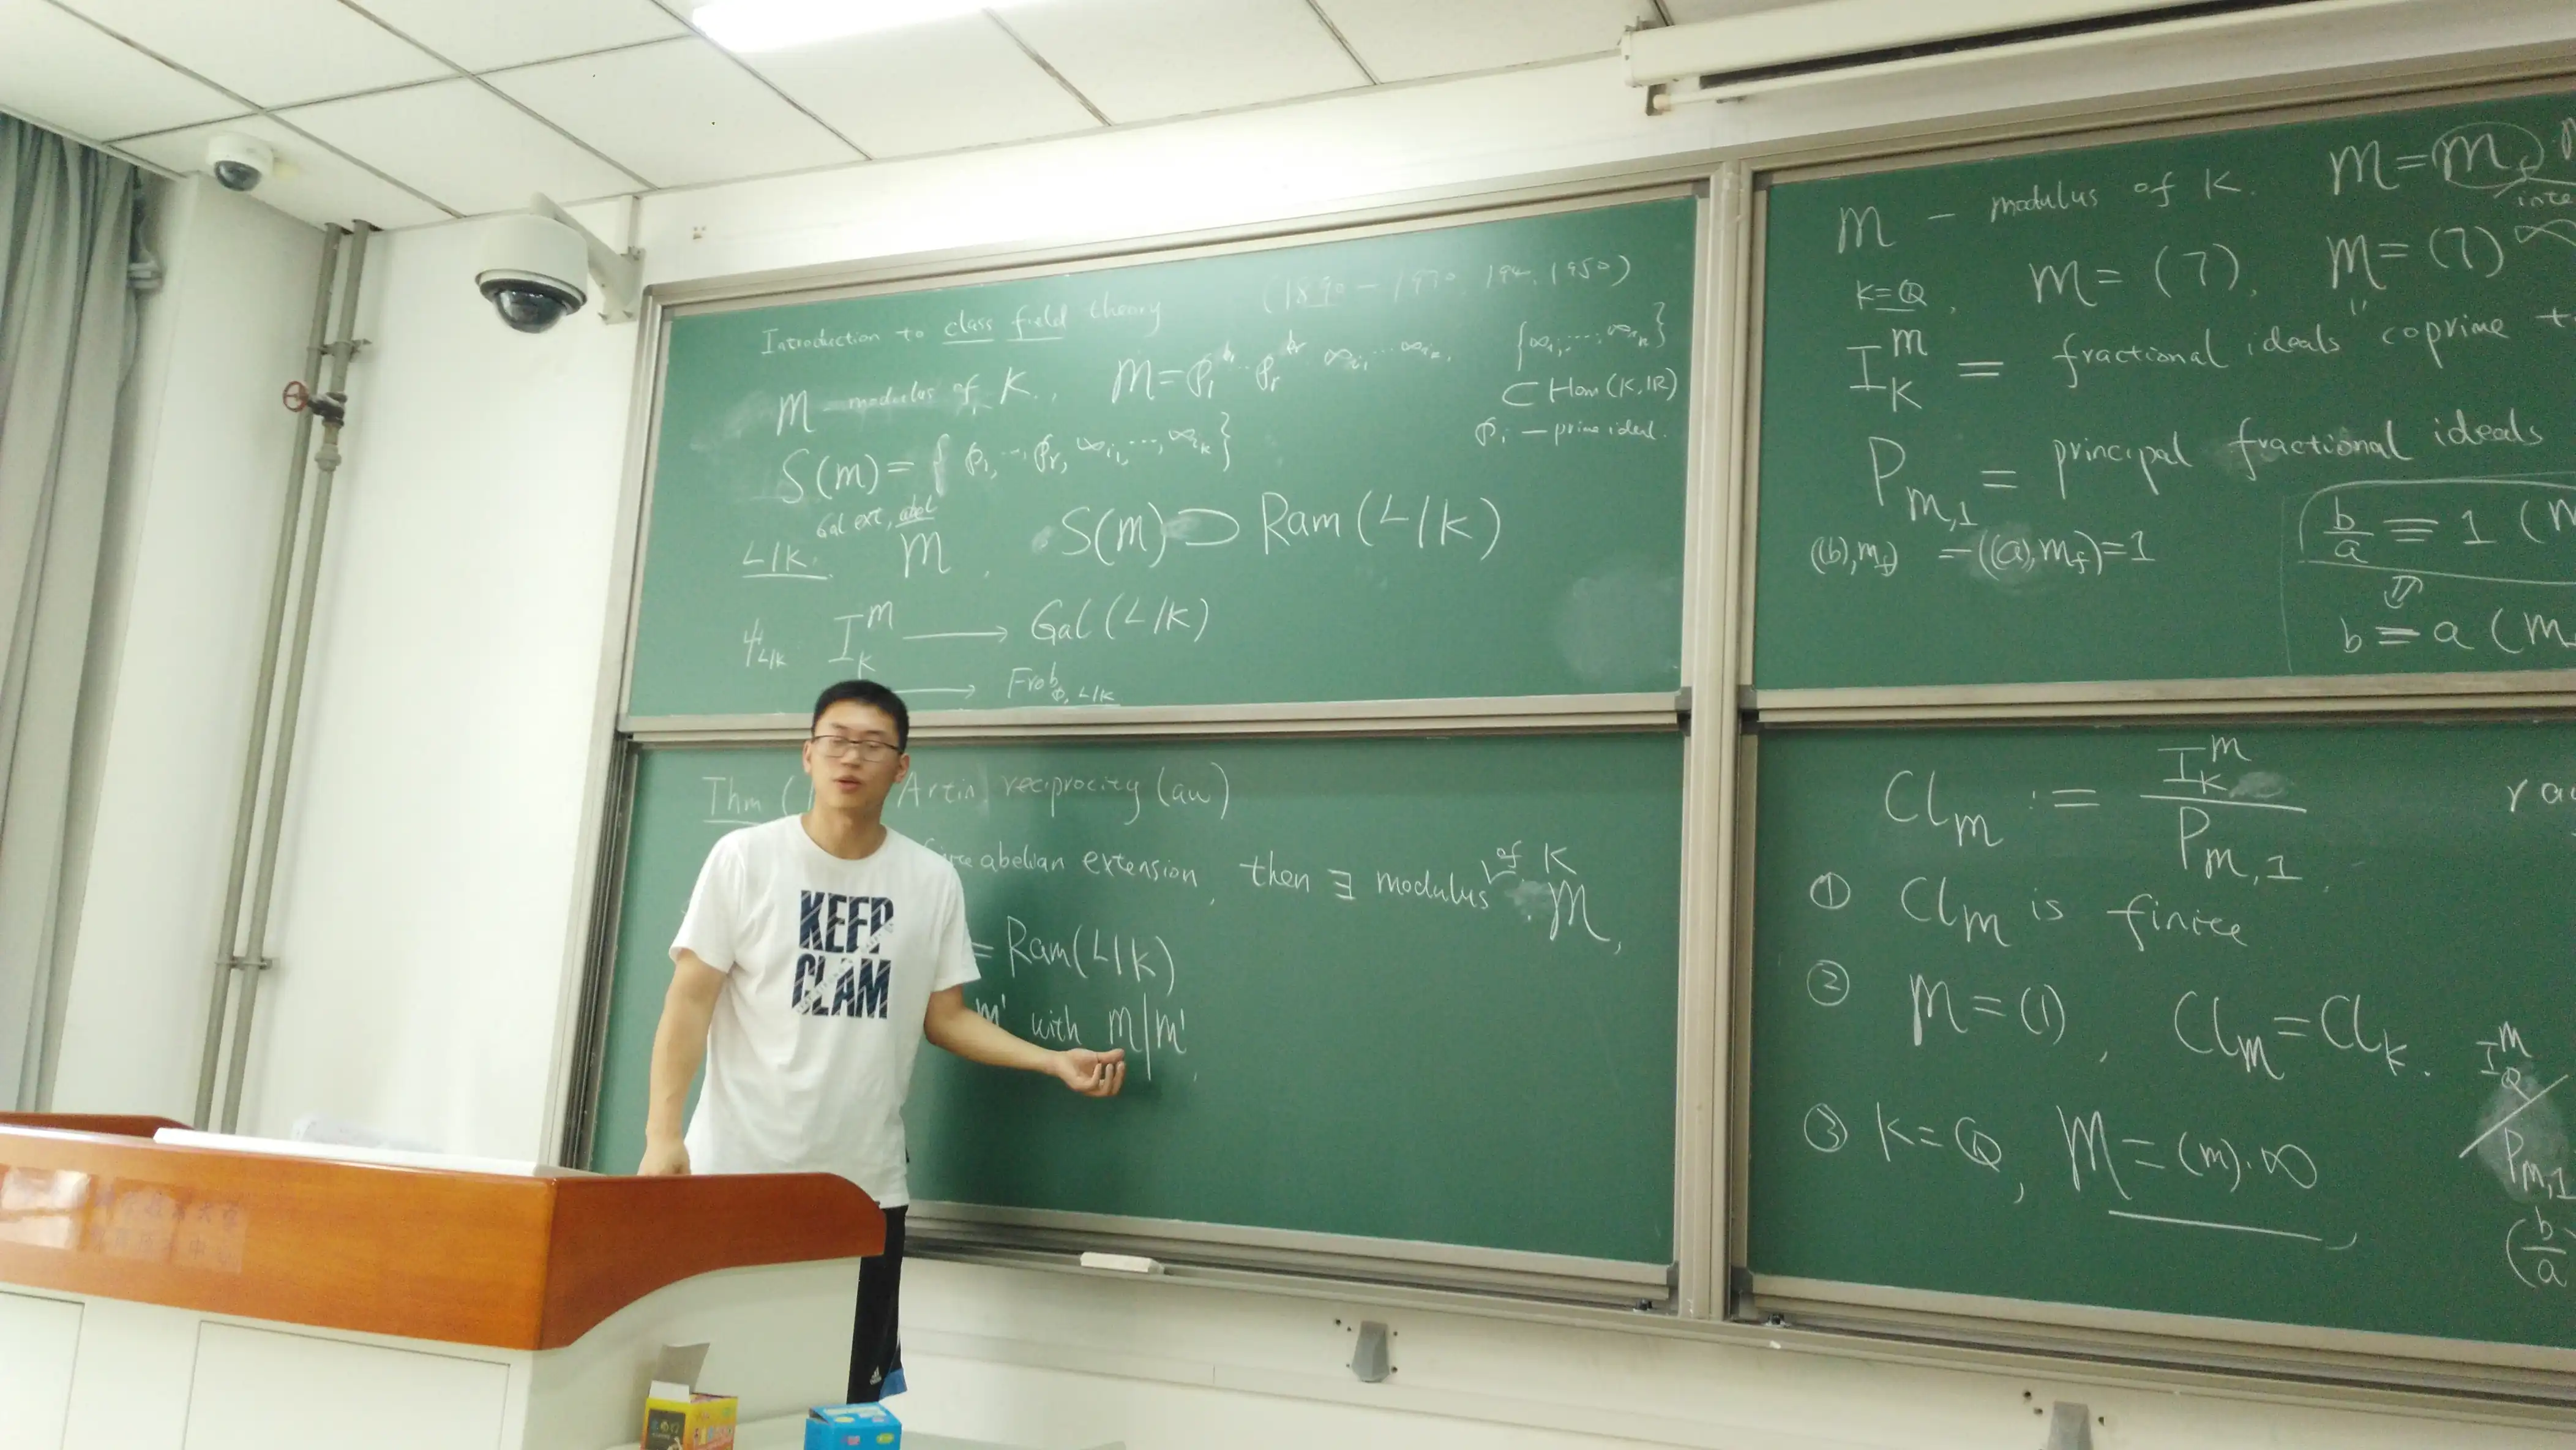 Introduction to class field theory (1890 - 1970, 194, 1950)
m - modulus of K., m = p₁ ... pᵣ ∞ᵢ₁ ... ∞ᵢₖ, {∞ᵢ₁, ..., ∞ᵢₖ}
⊂ Hom(K, IR)
pᵢ — prime ideal.
S(m) = { p₁, ... pᵣ, ∞ᵢ₁, ..., ∞ᵢₖ}
Gal ext, abel
L/K. m, S(m) ⊃ Ram(L/K)
ψ_{L/K} I_K^m → Gal(L/K)
→ Frob_{p, L/K}
Thm ( Artin reciprocity (aw)
abelian extension, then ∃ modulus of K m,
= Ram(L/K)
m' with m|m',
KEEP
CLAM
m - modulus of K. m = m_f
K=Q, m = (7), m = (7)∞
I_K^m = fractional ideals coprime
P_{m,1} = principal fractional ideals
((b), m_f) = ((a), m_f) = 1
b/a ≡ 1 (m
b ≡ a (m
Cl_m := I_K^m / P_{m,1}.
① Cl_m is finite
② m = (1), Cl_m = Cl_K.
③ K = Q, m = (m)·∞,
I_Q^m / P_{m,1}
(b/a